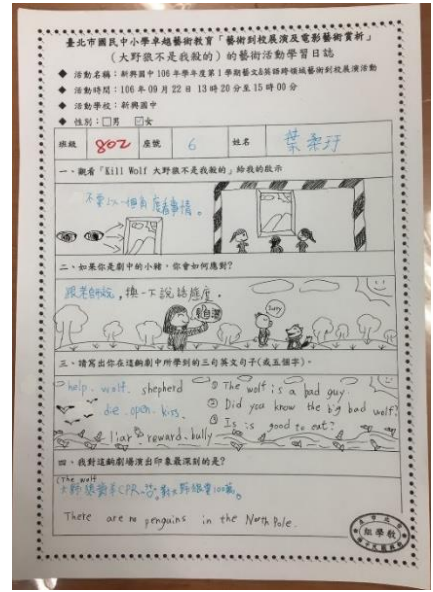 臺北市國民中小學卓越藝術教育「藝術到校展演及電影藝術賞析」
(大野狼不是我殺的)的藝術活動學習日誌
◆ 活動名稱:新興國中106年學年度第1學期藝文&英語跨領域藝術到校展演活動
◆ 活動時間:106年09月22日13時20分至15時00分
◆ 活動學校:新興國中
◆ 性別:□男 ☑女
班級 802 座號 6 姓名 葉
一、觀看「Kill Wolf 大野狼不是我殺的」給我的啟示
不要以一個角度看事情。
二、如果你是劇中的小豬,你會如何應對?
跟老師說,換一下說話態度。
Sorry
三、請寫出你在這齣劇中所學到的三句英文句子(或五個字)。
help. wolf. shepherd
die open. kiss.
liar reward. bully
① The wolf is a bad guy.
② Did you know the big bad wolf?
③ Is is good to eat?
四、我對這齣劇場演出印象最深刻的是?
(The wolf
大野狼
CPR
There are no penguins in the North Pole.
教學組